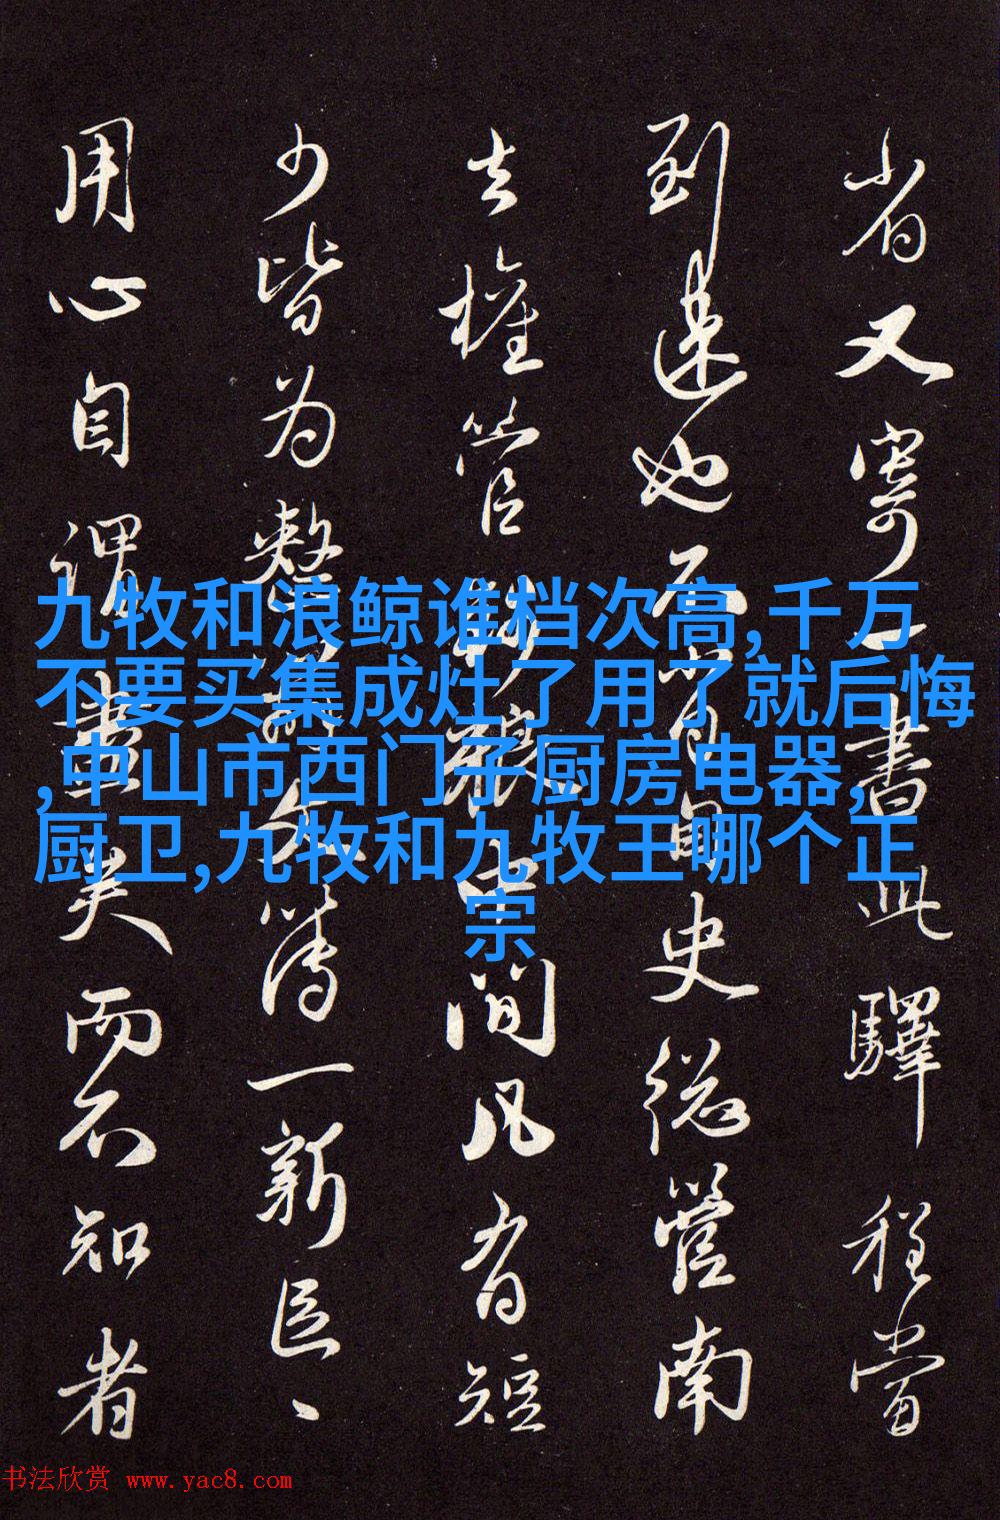 九牧和浪鲸谁档次高,千万
不要买集成灶了用了就后悔
,中山市西门子厨房电器,
厨卫,九牧和九牧王哪个正
宗
省又寄一書此驛程當
到速也不自史総管南
去權管間凡有短
少皆为整文簿一新匠、
用心自謂盡美而不知者
书法欣赏 www.yac8.com